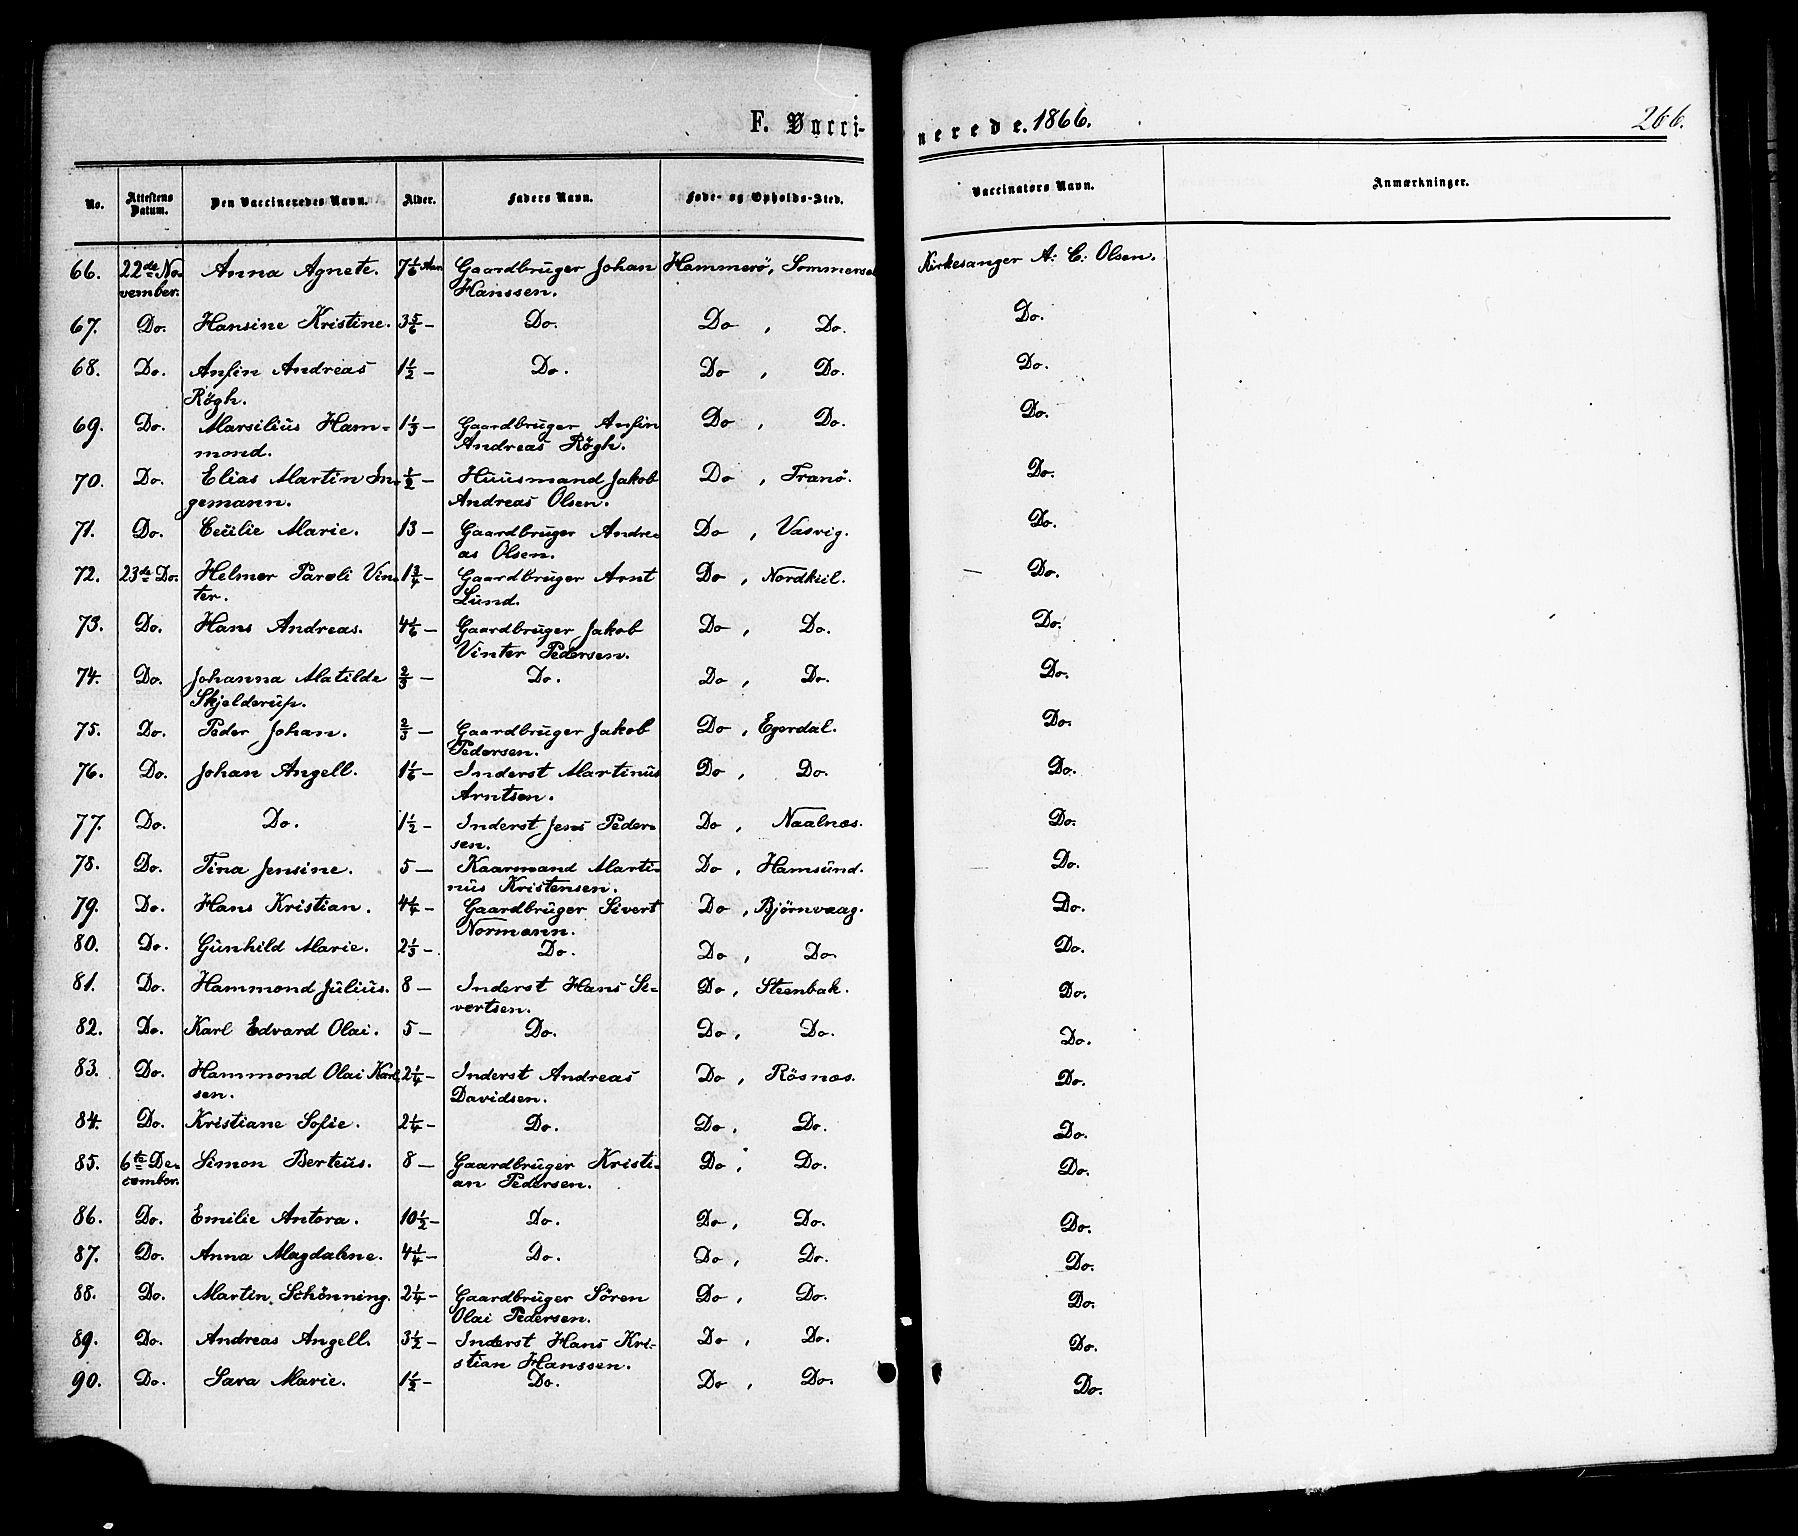 F. Vacci-
nerede. 1866.
266.
No. Attestens Datum. Den Vaccineredes Navn. Alder. Faders Navn. Føde- og Opholds-Sted. Vaccinators Navn. Anmærkninger.
66. 22de No- Anna Agnete. 7 1/6 Aar Gaardbruger Johan Hammerö, Kirkesanger A. C. Olsen.
vember. Hanssen.
67. Do. Hansine Kristine. 3 5/6 — Do. Do, Do. Do.
68. Do. Anfin Andreas 1 1/2 — Do. Do, Do. Do.
Rögh.
69. Do. Marsilius Ham- 1 1/3 — Gaardbruger Anfin Do, Do. Do.
mond. Andreas Rögh.
70. Do. Elias Martin In- 1/2 — Huusmand Jakob Do, Tranö. Do.
gemann. Andreas Olsen.
71. Do. Cecilie Marie. 13 — Gaardbruger Andre- Do, Vasvig. Do.
as Olsen.
72. 23de Do. Helmer Paroli Vin- 1 3/4 — Gaardbruger Arnt Do, Nordkiil. Do.
ter. Lund.
73. Do. Hans Andreas. 4 1/6 — Gaardbruger Jakob Do, Do. Do.
Vinter Pedersen.
74. Do. Johanna Matilde 2/3 — Do. Do, Do. Do.
Skjelderup.
75. Do. Peder Johan. 2/3 — Gaardbruger Jakob Do, Egerdal. Do.
Pedersen.
76. Do. Johan Angell. 1 1/6 — Inderst Martinus Do, Do. Do.
Arntsen.
77. Do. Do. 1 1/2 — Inderst Jens Peder- Do, Naalnæs. Do.
sen.
78. Do. Tina Jensine. 5 — Kaarmand Marti- Do, Hamsund. Do.
nus Kristensen.
79. Do. Hans Kristian. 4 1/4 — Gaardbruger Sivert Do, Björnvaag. Do.
Normann.
80. Do. Gunhild Marie. 2 1/3 — Do. Do, Do. Do.
81. Do. Hammond Julius. 8 — Inderst Hans Si- Do, Steenbak. Do.
vertsen.
82. Do. Karl Edvard Olai. 5 — Do. Do, Do. Do.
83. Do. Hammond Olai Karl- 2 1/4 — Inderst Andreas Do, Rösnæs. Do.
sen. Davidsen.
84. Do. Kristiane Sofie. 2 1/4 — Do. Do, Do. Do.
85. 6te De- Simon Berteus. 8 — Gaardbruger Kristi- Do, Do. Do.
cember. an Pedersen.
86. Do. Emilie Antora. 10 1/2 — Do. Do, Do. Do.
87. Do. Anna Magdalene. 4 1/4 — Do. Do, Do. Do.
88. Do. Martin Schönning. 2 1/4 — Gaardbruger Sören Do, Do. Do.
Olai Pedersen.
89. Do. Andreas Angell. 3 1/2 — Inderst Hans Kri- Do, Do. Do.
stian Hanssen.
90. Do. Sara Marie. 1 1/2 — Do. Do, Do. Do.